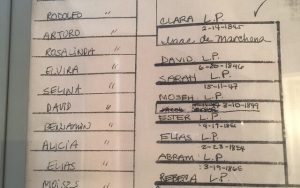 RODOLFO "
ARTURO "
ROSALINDA "
ELVIRA "
SELINA "
DAVID "
BENJAMIN "
ALICIA "
ELIAS "
MOISES "
CLARA L.P.
2-14-1845
Isaac de Marchena
DAVID L.P.
6-20-1846
SARAH L.P.
15-11-47
MOSEH L.P.
2-10-1849
ESTER L.P.
9-17-1851
ELIAS L.P.
2-23-1854
ABRAM L.P.
3-19-1865
REBECA L.P.